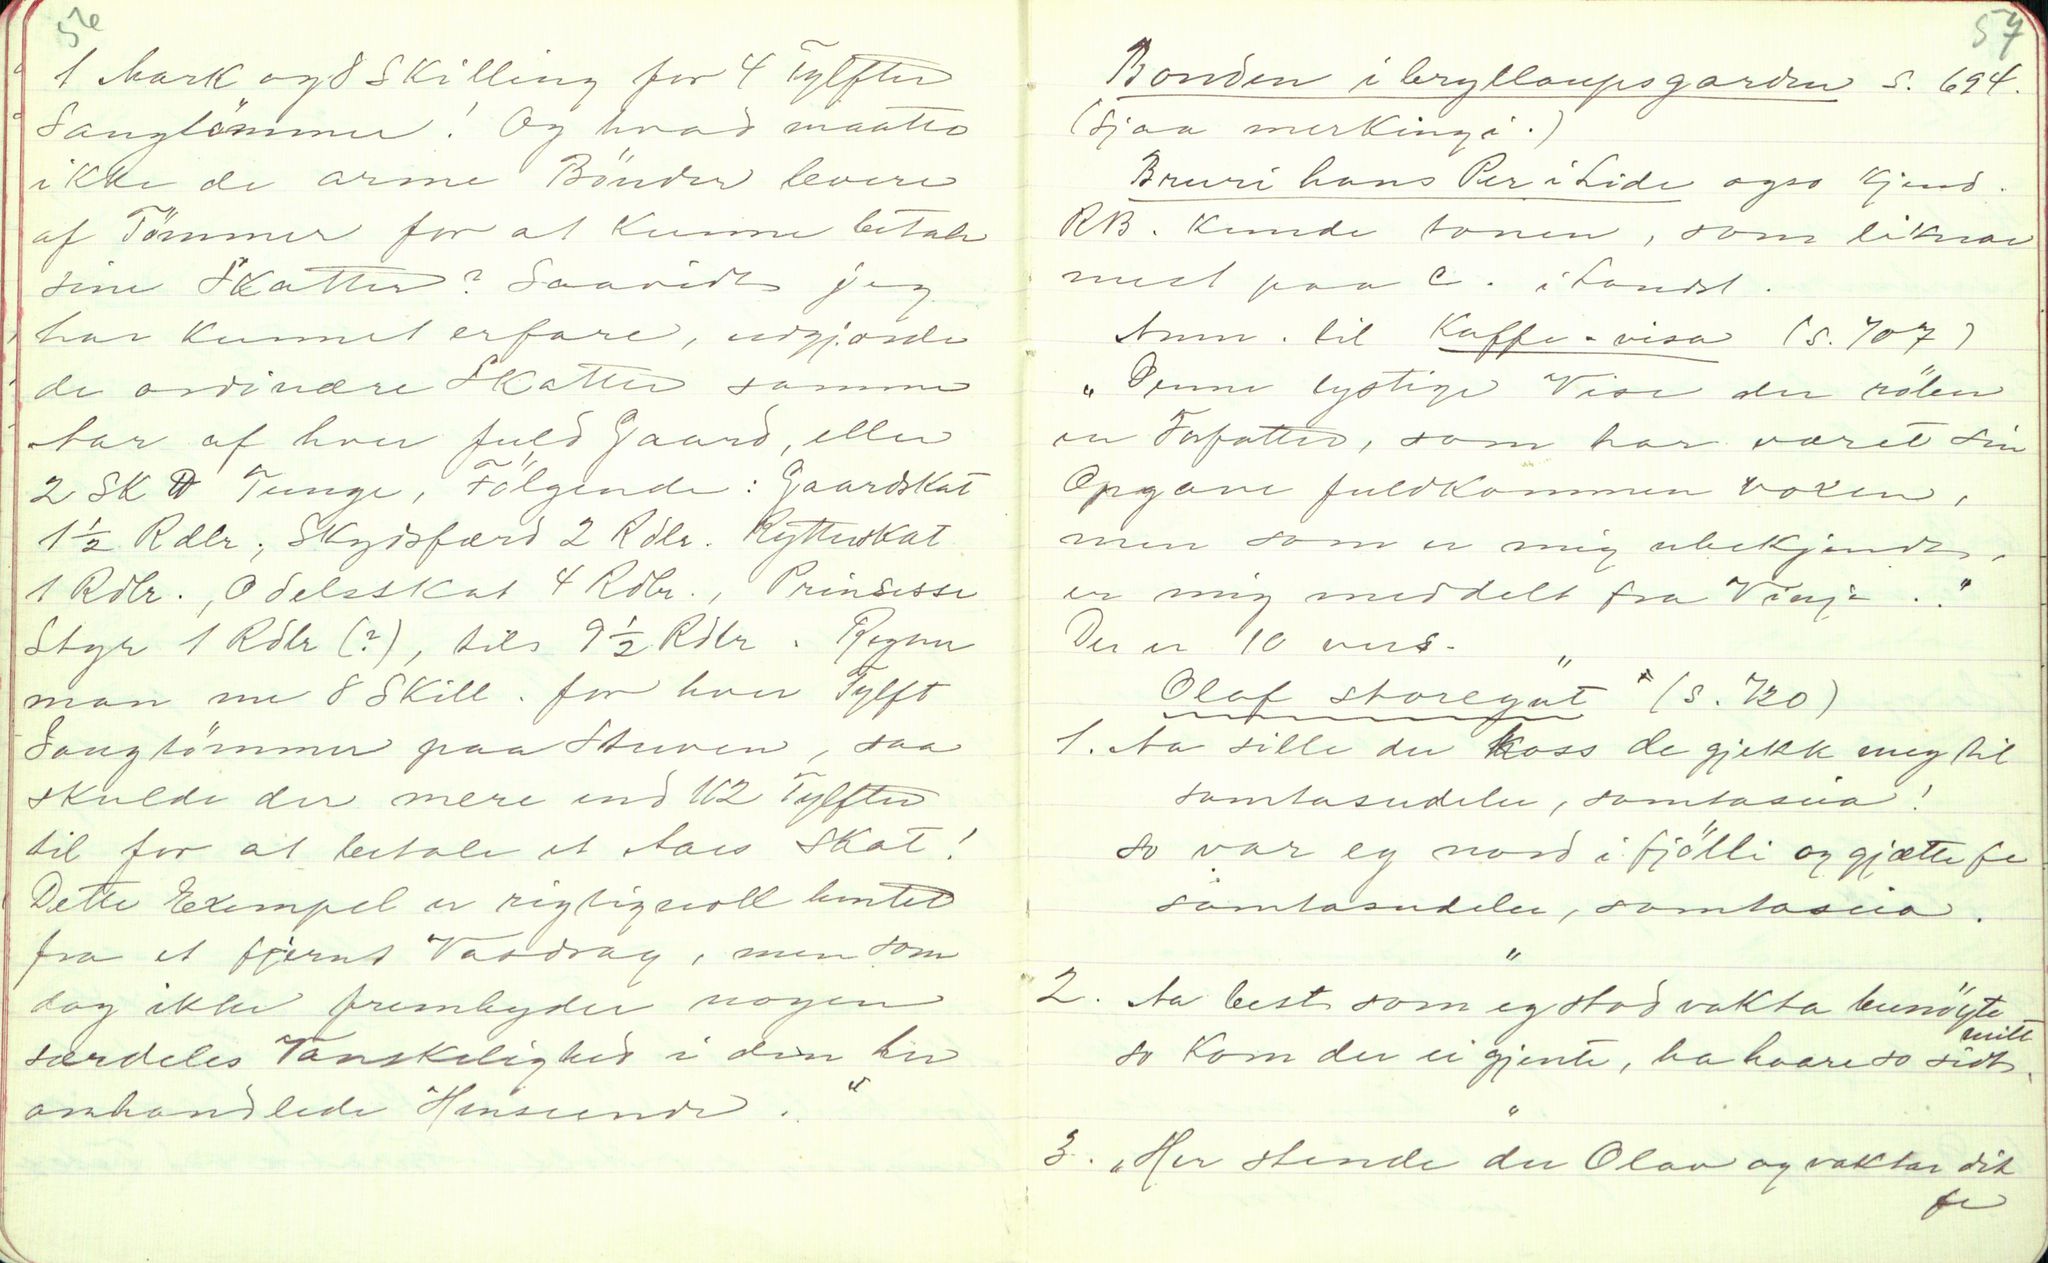 56
1 Mark og 8 Skilling for 4 Tylfter
Saugtömmer! Og hvad maatte
ikke de arme Bönder levere
af Tömmer for at kunne betale
sine Skatter? Saavidt jeg
har kunnet erfare, udgjorde
de ordinære Skatter samme
Aar af hver fuld Gaard, eller
2 Sk ℔ Tunge, Fölgende: Gaardskat
1½ Rdlr., Skydsfærd 2 Rdlr. Rytterskat
1 Rdlr., Odelsskat 4 Rdlr., Prinsesse
Styr 1 Rdlr (?), tils 9½ Rdlr. Regner
man nu 8 Skill. for hver Tylft
Saugtömmer paa Stuven, saa
skulde der mere end 112 Tylfter
til for at betale et Aars Skat!
Dette Exempel er rigtignoll hentet
fra et fjernt Vasdrag, men som
dog ikke frembyder nogen
særdeles Vanskelighed i den her
omhandlede Henseende."
57
Bonden i bryllaupsgarden s. 694.
(sjaa merkingi.)
Bruri hans Per i Lide ogso kjend.
RB. kunde tonen, som liknar
mest paa C. i Landst.
Anm. til Kaffe-visa (s. 707)
"Denne lystige Vise der röber
en Forfatter, som har været sin
Opgave fuldkommen voxen,
men som er mig ubekjendt,
er mig meddelt fra Vinje."
Der er 10 vers.
"
Olaf storegut (s. 720)
1. Aa sille du koss de gjekk meg til
samtasudelei, samtaseia!
so var eg nord i fjölli og gjætte fe
samtasudelei, samtaseia.
"
2. Aa best som eg stod vakta bunöyte
mitt
so kom der ei gjente, ha haare so sidt.
"
3. "Her stende du Olav og vaktar dit
fe